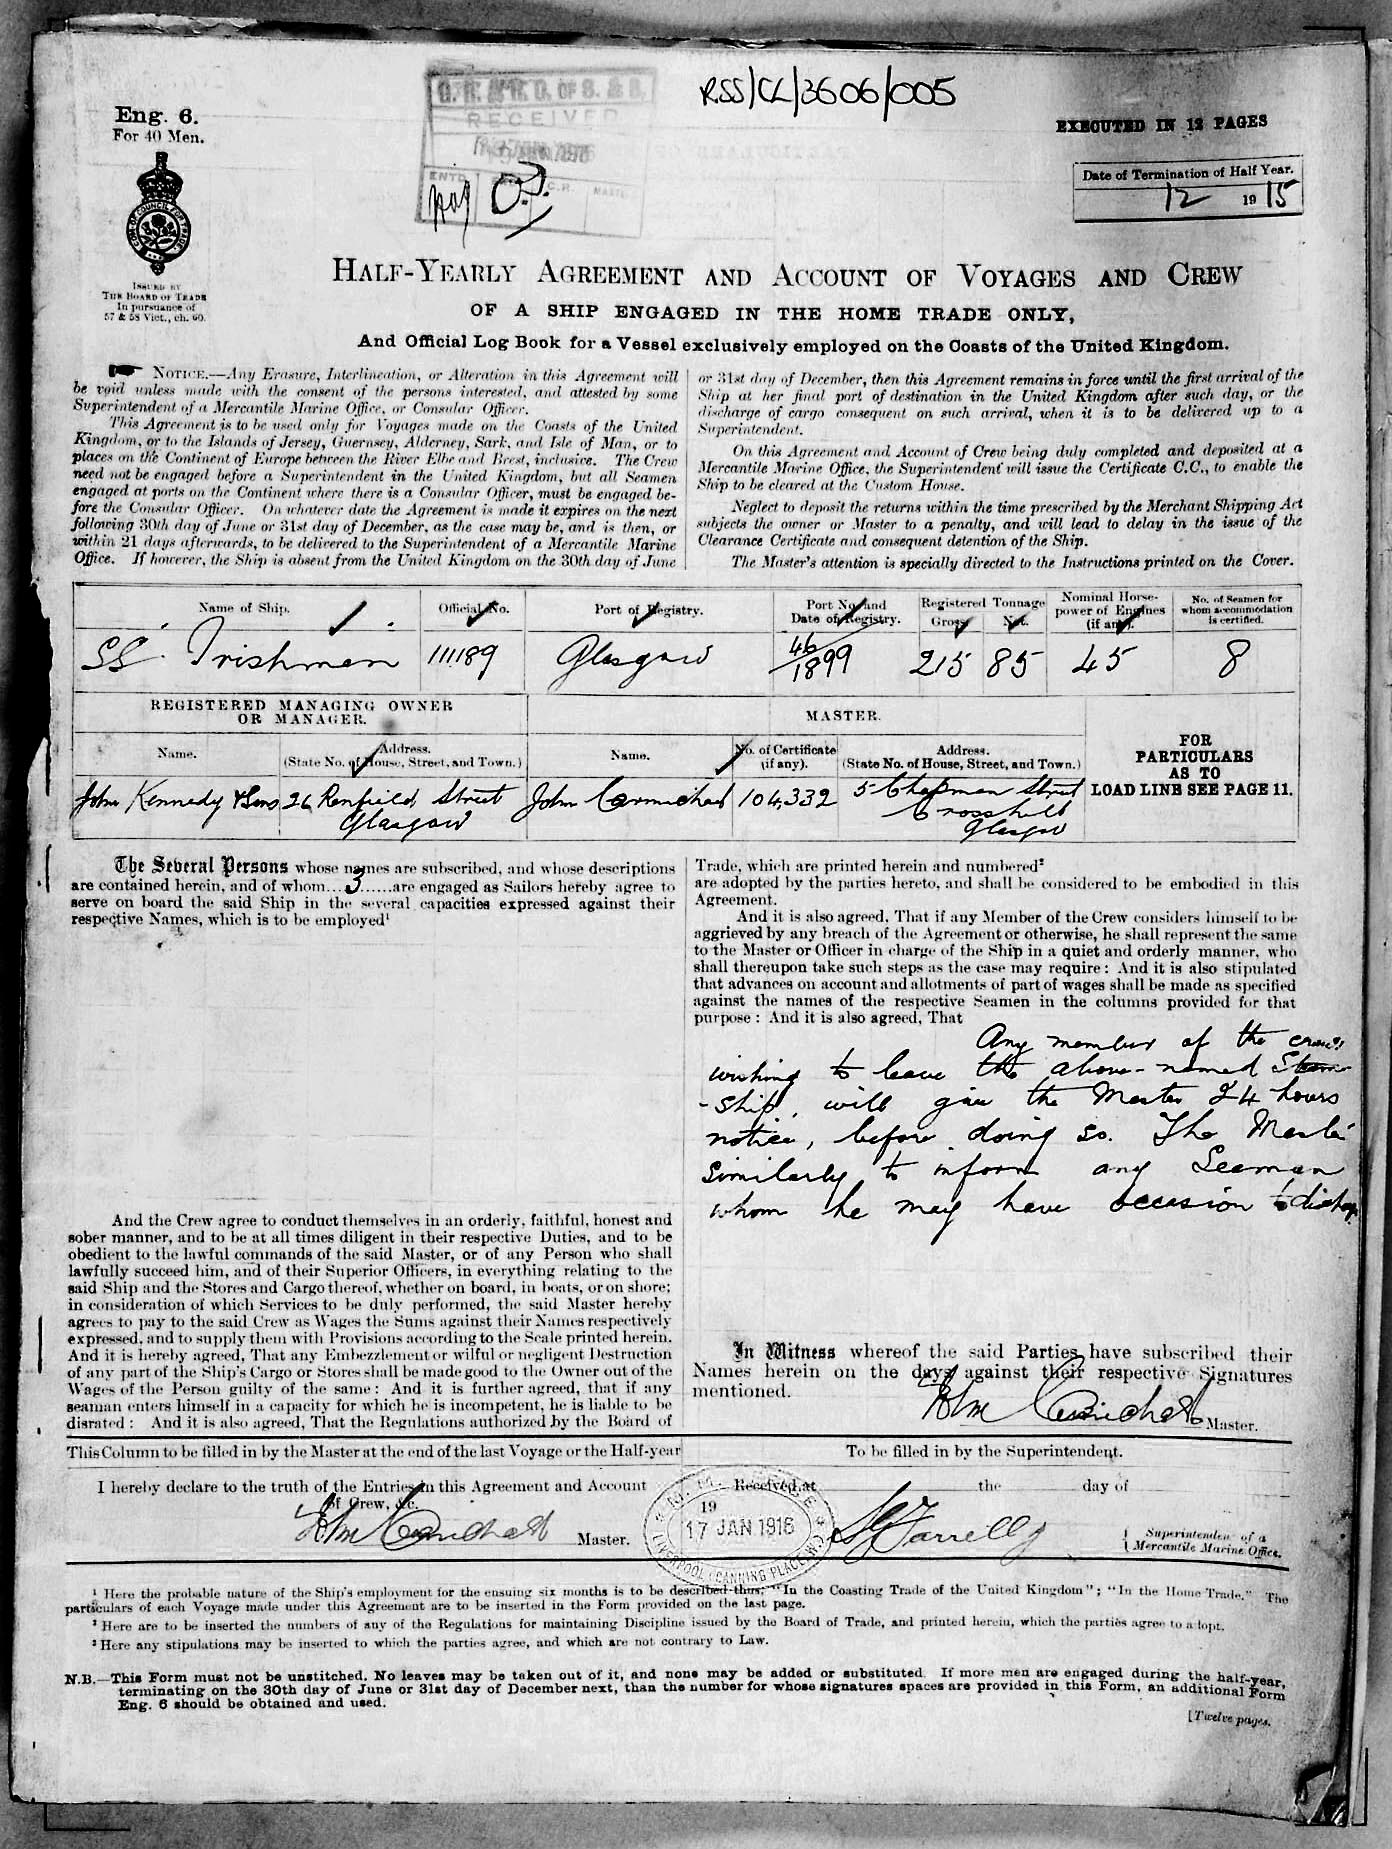 RSS/CL/3606/005
Eng. 6.
For 40 Men.
RECEIVED
EXECUTED IN 12 PAGES
Date of Termination of Half Year.
12 1915
ISSUED BY
THE BOARD OF TRADE
In pursuance of
57 & 58 Vict., ch. 60.
HALF-YEARLY AGREEMENT AND ACCOUNT OF VOYAGES AND CREW
OF A SHIP ENGAGED IN THE HOME TRADE ONLY,
And Official Log Book for a Vessel exclusively employed on the Coasts of the United Kingdom.
NOTICE.—Any Erasure, Interlineation, or Alteration in this Agreement will
be void unless made with the consent of the persons interested, and attested by some
Superintendent of a Mercantile Marine Office, or Consular Officer.
This Agreement is to be used only for Voyages made on the Coasts of the United
Kingdom, or to the Islands of Jersey, Guernsey, Alderney, Sark, and Isle of Man, or to
places on the Continent of Europe between the River Elbe and Brest, inclusive. The Crew
need not be engaged before a Superintendent in the United Kingdom, but all Seamen
engaged at ports on the Continent where there is a Consular Officer, must be engaged be-
fore the Consular Officer. On whatever date the Agreement is made it expires on the next
following 30th day of June or 31st day of December, as the case may be, and is then, or
within 21 days afterwards, to be delivered to the Superintendent of a Mercantile Marine
Office. If however, the Ship is absent from the United Kingdom on the 30th day of June
or 31st day of December, then this Agreement remains in force until the first arrival of the
Ship at her final port of destination in the United Kingdom after such day, or the
discharge of cargo consequent on such arrival, when it is to be delivered up to a
Superintendent.
On this Agreement and Account of Crew being duly completed and deposited at a
Mercantile Marine Office, the Superintendent will issue the Certificate C.C., to enable the
Ship to be cleared at the Custom House.
Neglect to deposit the returns within the time prescribed by the Merchant Shipping Act
subjects the owner or Master to a penalty, and will lead to delay in the issue of the
Clearance Certificate and consequent detention of the Ship.
The Master's attention is specially directed to the Instructions printed on the Cover.
Name of Ship. Official No. Port of Registry. Port No. and Date of Registry. Registered Tonnage Gross Net. Nominal Horse-power of Engines (if any). No. of Seamen for whom accommodation is certified.
SS. Irishman 111189 Glasgow 46/1899 215 85 45 8
REGISTERED MANAGING OWNER
OR MANAGER.
MASTER.
Name. Address. (State No. of House, Street, and Town.) Name. No. of Certificate (if any). Address. (State No. of House, Street, and Town.)
FOR
PARTICULARS
AS TO
LOAD LINE SEE PAGE 11.
John Kennedy & Sons 26 Renfield Street John Carmichael 104,332 5 Chapman Street
Glasgow Crosshill
Glasgow
The Several Persons whose names are subscribed, and whose descriptions
are contained herein, and of whom....3......are engaged as Sailors hereby agree to
serve on board the said Ship in the several capacities expressed against their
respective Names, which is to be employed¹
And the Crew agree to conduct themselves in an orderly, faithful, honest and
sober manner, and to be at all times diligent in their respective Duties, and to be
obedient to the lawful commands of the said Master, or of any Person who shall
lawfully succeed him, and of their Superior Officers, in everything relating to the
said Ship and the Stores and Cargo thereof, whether on board, in boats, or on shore;
in consideration of which Services to be duly performed, the said Master hereby
agrees to pay to the said Crew as Wages the Sums against their Names respectively
expressed, and to supply them with Provisions according to the Scale printed herein.
And it is hereby agreed, That any Embezzlement or wilful or negligent Destruction
of any part of the Ship's Cargo or Stores shall be made good to the Owner out of the
Wages of the Person guilty of the same: And it is further agreed, that if any
seaman enters himself in a capacity for which he is incompetent, he is liable to be
disrated: And it is also agreed, That the Regulations authorized by the Board of
Trade, which are printed herein and numbered²
are adopted by the parties hereto, and shall be considered to be embodied in this
Agreement.
And it is also agreed, That if any Member of the Crew considers himself to be
aggrieved by any breach of the Agreement or otherwise, he shall represent the same
to the Master or Officer in charge of the Ship in a quiet and orderly manner, who
shall thereupon take such steps as the case may require: And it is also stipulated
that advances on account and allotments of part of wages shall be made as specified
against the names of the respective Seamen in the columns provided for that
purpose: And it is also agreed, That
Any member of the crew
wishing to leave the above-named Steam
-ship, will give the Master 24 hours
notice, before doing so. The Master
similarly to inform any Seaman
whom he may have occasion to
In Witness whereof the said Parties have subscribed their
Names herein on the days against their respective Signatures
mentioned.
John Carmichael Master.
This Column to be filled in by the Master at the end of the last Voyage or the Half-year
To be filled in by the Superintendent.
I hereby declare to the truth of the Entries in this Agreement and Account
of Crew, &c.
John Carmichael Master.
Received at the day of
19
17 JAN 1916
LIVERPOOL CANNING PLACE
Superintendent of a
Mercantile Marine Office.
¹ Here the probable nature of the Ship's employment for the ensuing six months is to be described thus: "In the Coasting Trade of the United Kingdom"; "In the Home Trade." The
particulars of each Voyage made under this Agreement are to be inserted in the Form provided on the last page.
² Here are to be inserted the numbers of any of the Regulations for maintaining Discipline issued by the Board of Trade, and printed herein, which the parties agree to adopt.
³ Here any stipulations may be inserted to which the parties agree, and which are not contrary to Law.
N.B.—This Form must not be unstitched. No leaves may be taken out of it, and none may be added or substituted. If more men are engaged during the half-year,
terminating on the 30th day of June or 31st day of December next, than the number for whose signatures spaces are provided in this Form, an additional Form
Eng. 6 should be obtained and used.
[Twelve pages.